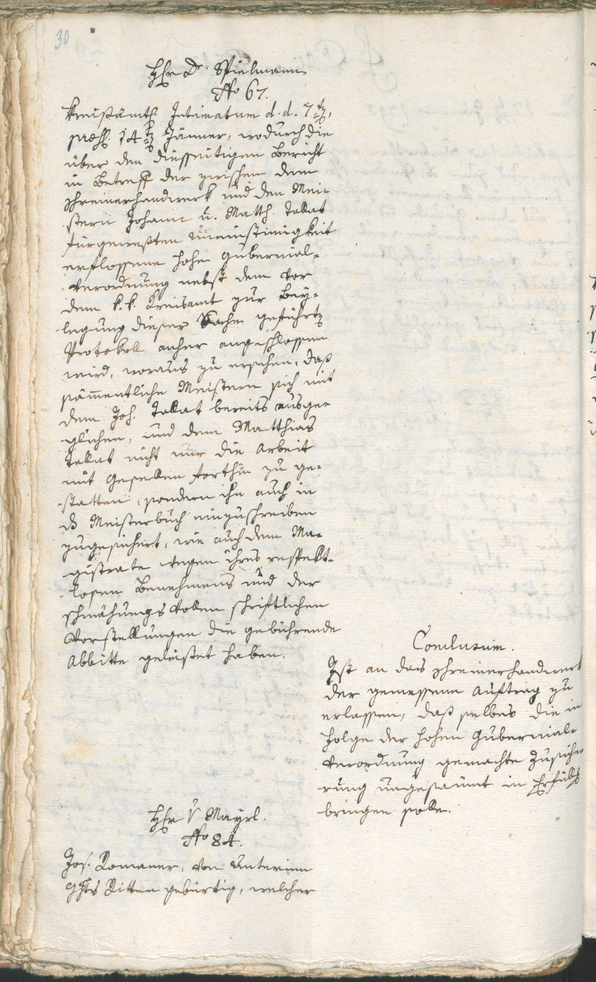 30
Hhr Dr. Spielmann
No 67.
Kreisämtl. Intimatum d. d. 7ten,
praes. 14ten Jänner, wodurch die
über den diesseitigen Bericht
in Betreff der zwischen dem
Schreinerhandwerk und den Mei-
stern Johann u. Matth. Tabat
fürgewesten Uneinstimigkeit
erflossene hohe Gubernial-
Verordnung nebst dem vor
dem k. k. Kreisamt zur Bey-
legung dieser Sache geführte
Protokol anher angeschlossen
wird, woraus zu ersehen, daß
sämentliche Meistern sich mit
dem Joh. Tabat bereits ausge-
glichen, und dem Matthias
Tabat nicht nur die Arbeit
mit Gesellen forthin zu ge-
statten, sondern ihn auch in
das Meisterbuch einzuschreiben
zugesichert, wie auch dem Ma-
gistrate wegen ihres respekt-
losen Benehmens und der
schmähungsvolen schriftlichen
Vorstellungen die gebührende
Abbitte geleistet haben.
Conclusum.
Ist an das Schreinerhandwerk
der gemessene Auftrag zu
erlassen, daß selbes die in
Folge der hohen Gubernial-
Verordnung gemachte Zusiche-
rung ungesäumt in Erfüllg
bringen solle.
Hhr v Mayrl.
No 84.
Jos. Romaner, von Unterinn
Ghts Ritten gebürtig, welcher